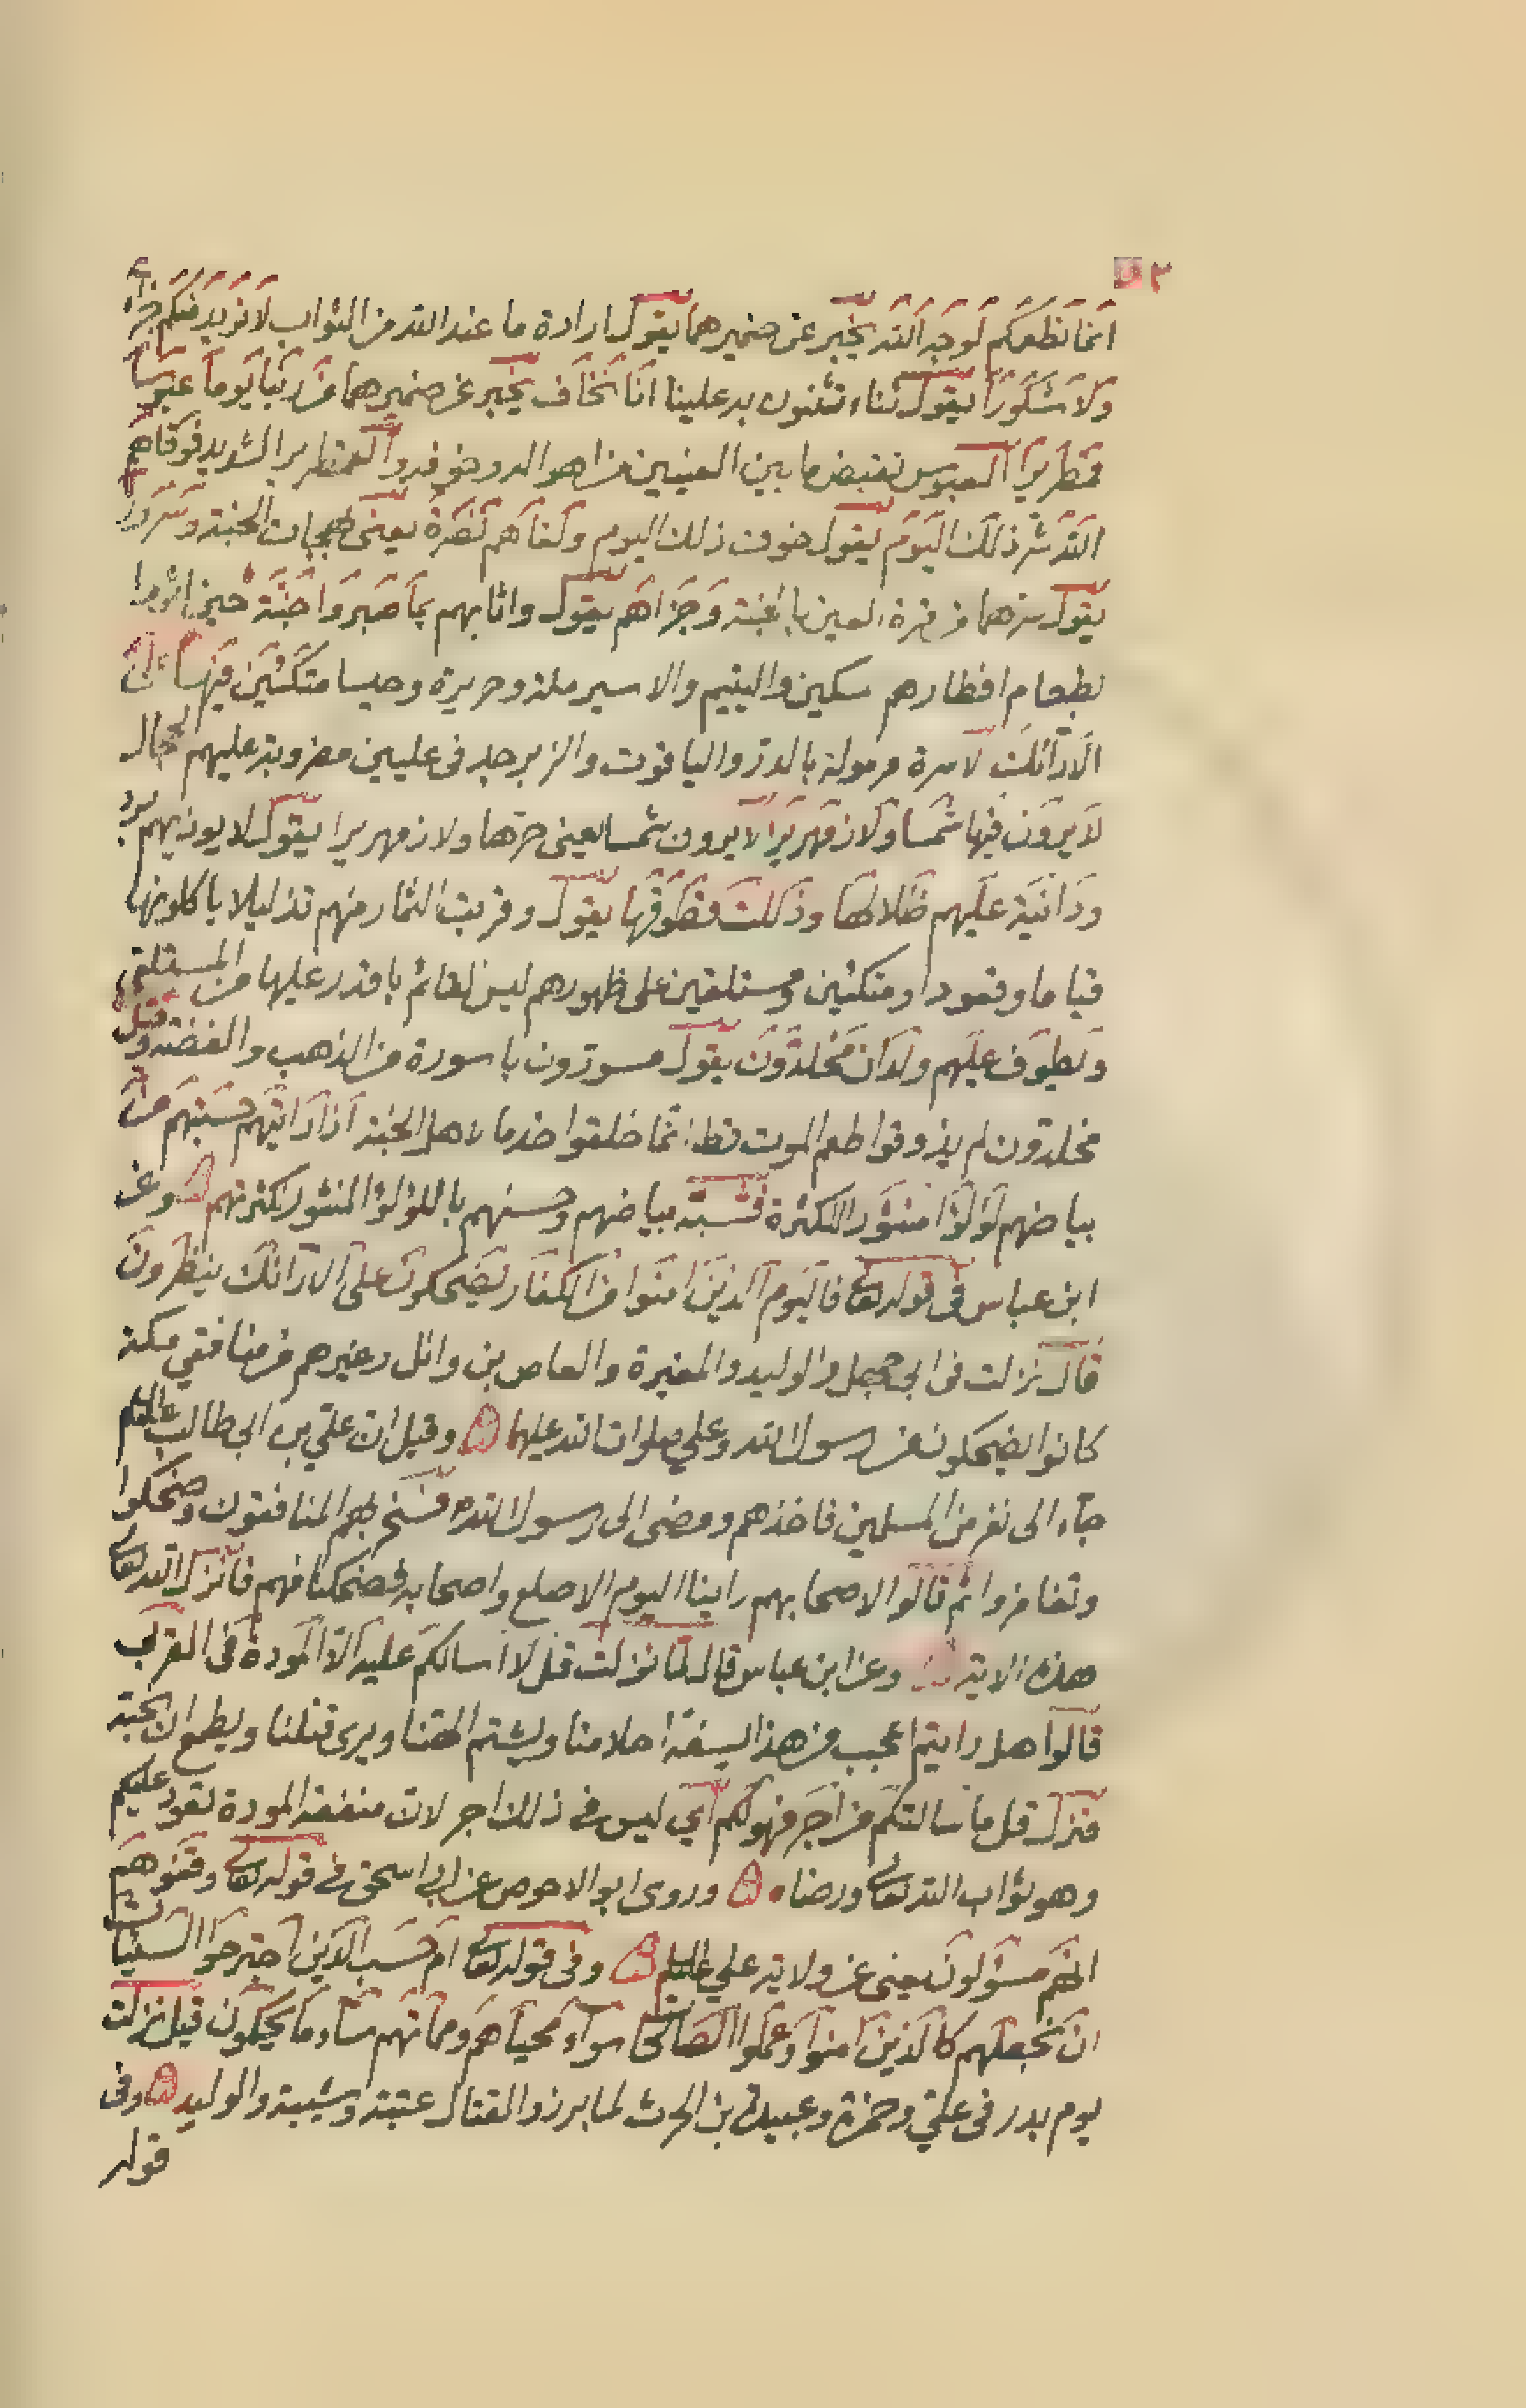 ٣
انما نطعمكم لوجه الله يخبر عن ضميرهما يقول ارادة ما عند الله من الثواب لا نريد منكم جزاء
ولا شكورا يقول ثناء تثنون به علينا انا نخاف يخبر عن ضميرهما من ربنا يوما عبوسا
قمطريرا العبوس تقبض ما بين العينين من اهواله وخوفه والقمطرير الشديد فوقاهم
الله شر ذلك اليوم يقول خوف ذلك اليوم ولقاهم نضرة يعني بهجات الجنة وسرورا
يقول سرهما من قرة العين بالجنة وجزاهم يقول واثابهم بما صبروا جنة حين اثروا
بطعام افطارهم مسكين واليتيم والاسير ملة وحريرة وحيسا متكئين فيها على
الارائك لاسرة مرمولة بالدر والياقوت والزبرجد في عليين مضروبة عليهم الحجال
لا يرون فيها شمسا ولا زمهريرا لا يرون شمسا يعني حرها ولا زمهريرا يقول لا يوذيهم برد
ودانية عليهم ظلالها وذللت قطوفها يقول وقربت الثمار منهم تذليلا ياكلونها
قياما وقعودا ومتكئين ومستلقين على ظهورهم ليس القائم باقدر عليها من المستلقي
ويطوف عليهم ولدان مخلدون يقول مسورون باسورة من الذهب والفضة وقيل
مخلدون لم يذوقوا طعم الموت قط انما خلقوا خدما لاهل الجنة اذا رايتهم حسبتهم من
بياضهم لؤلؤا منثورا لكثرة فشبه بياضهم وحسنهم باللؤلؤ المنثور لكثرتهم وعن
ابن عباس في قوله تعالى فاليوم الذين امنوا من الكفار يضحكون على الارائك ينظرون
قال نزلت في ابي جهل والوليد والمغيرة والعاص بن وائل وغيرهم من منافقي مكة
كانوا يضحكون من رسول الله وعلي صلوات الله عليهما وقيل ان علي بن ابي طالب عليه السلم
جاء الى نفر من المسلمين فاخذهم ومضى الى رسول الله فسخر بهم المنافقون وضحكوا
وتغامزوا ثم قالوا لاصحابهم راينا اليوم الاصلع واصحابه فضحكنا منهم فانزل الله تعالى
هذه الاية وعن ابن عباس قال لما نزلت قل لا اسالكم عليه الا المودة في القربى
قالوا هل رايتم اعجب من هذا يسفه احلامنا ويشتم الهتنا ويرى قتلنا ويطمع ان نحبه
فنزل قل ما سالتكم من اجر فهو لكم اي ليس في ذلك اجر لان منفعة المودة تعود عليكم
وهو ثواب الله تعالى ورضاه وروى ابو الاحوص عن ابي اسحق في قوله تعالى وقفوهم
انهم مسؤلون يعني عن ولاية علي عليه السلم وفي قوله تعالى ام حسب الذين اجترحوا السيئات
ان نجعلهم كالذين امنوا وعملوا الصالحات سواء محياهم ومماتهم ساء ما يحكمون قيل نزلت
يوم بدر في علي وحمزة وعبيدة بن الحرث لما برزوا لقتال عتبة وشيبة والوليد وفي
قوله